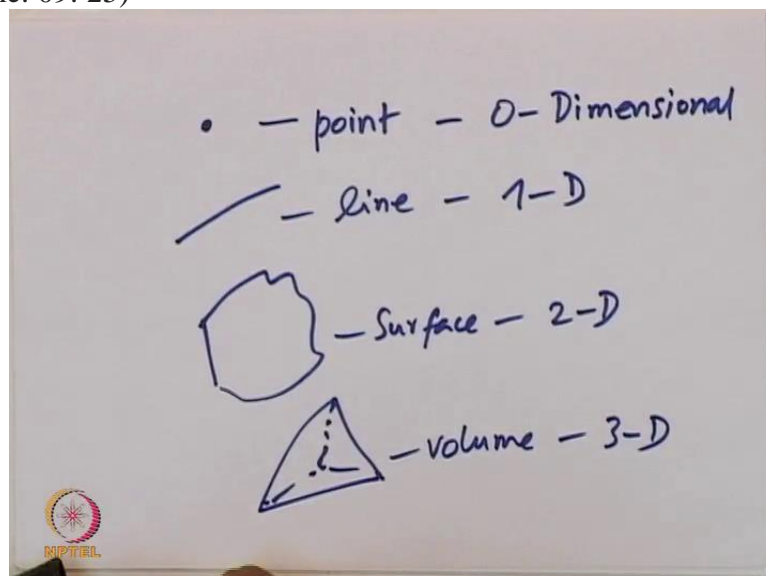 ne: 09: 25)
• — point — 0-Dimensional
— line — 1-D
— Surface — 2-D
— volume — 3-D
NPTEL